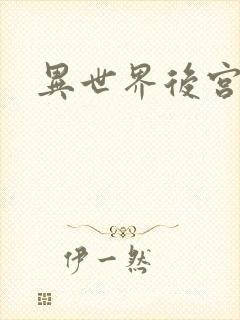 異世界後宮
伊一然